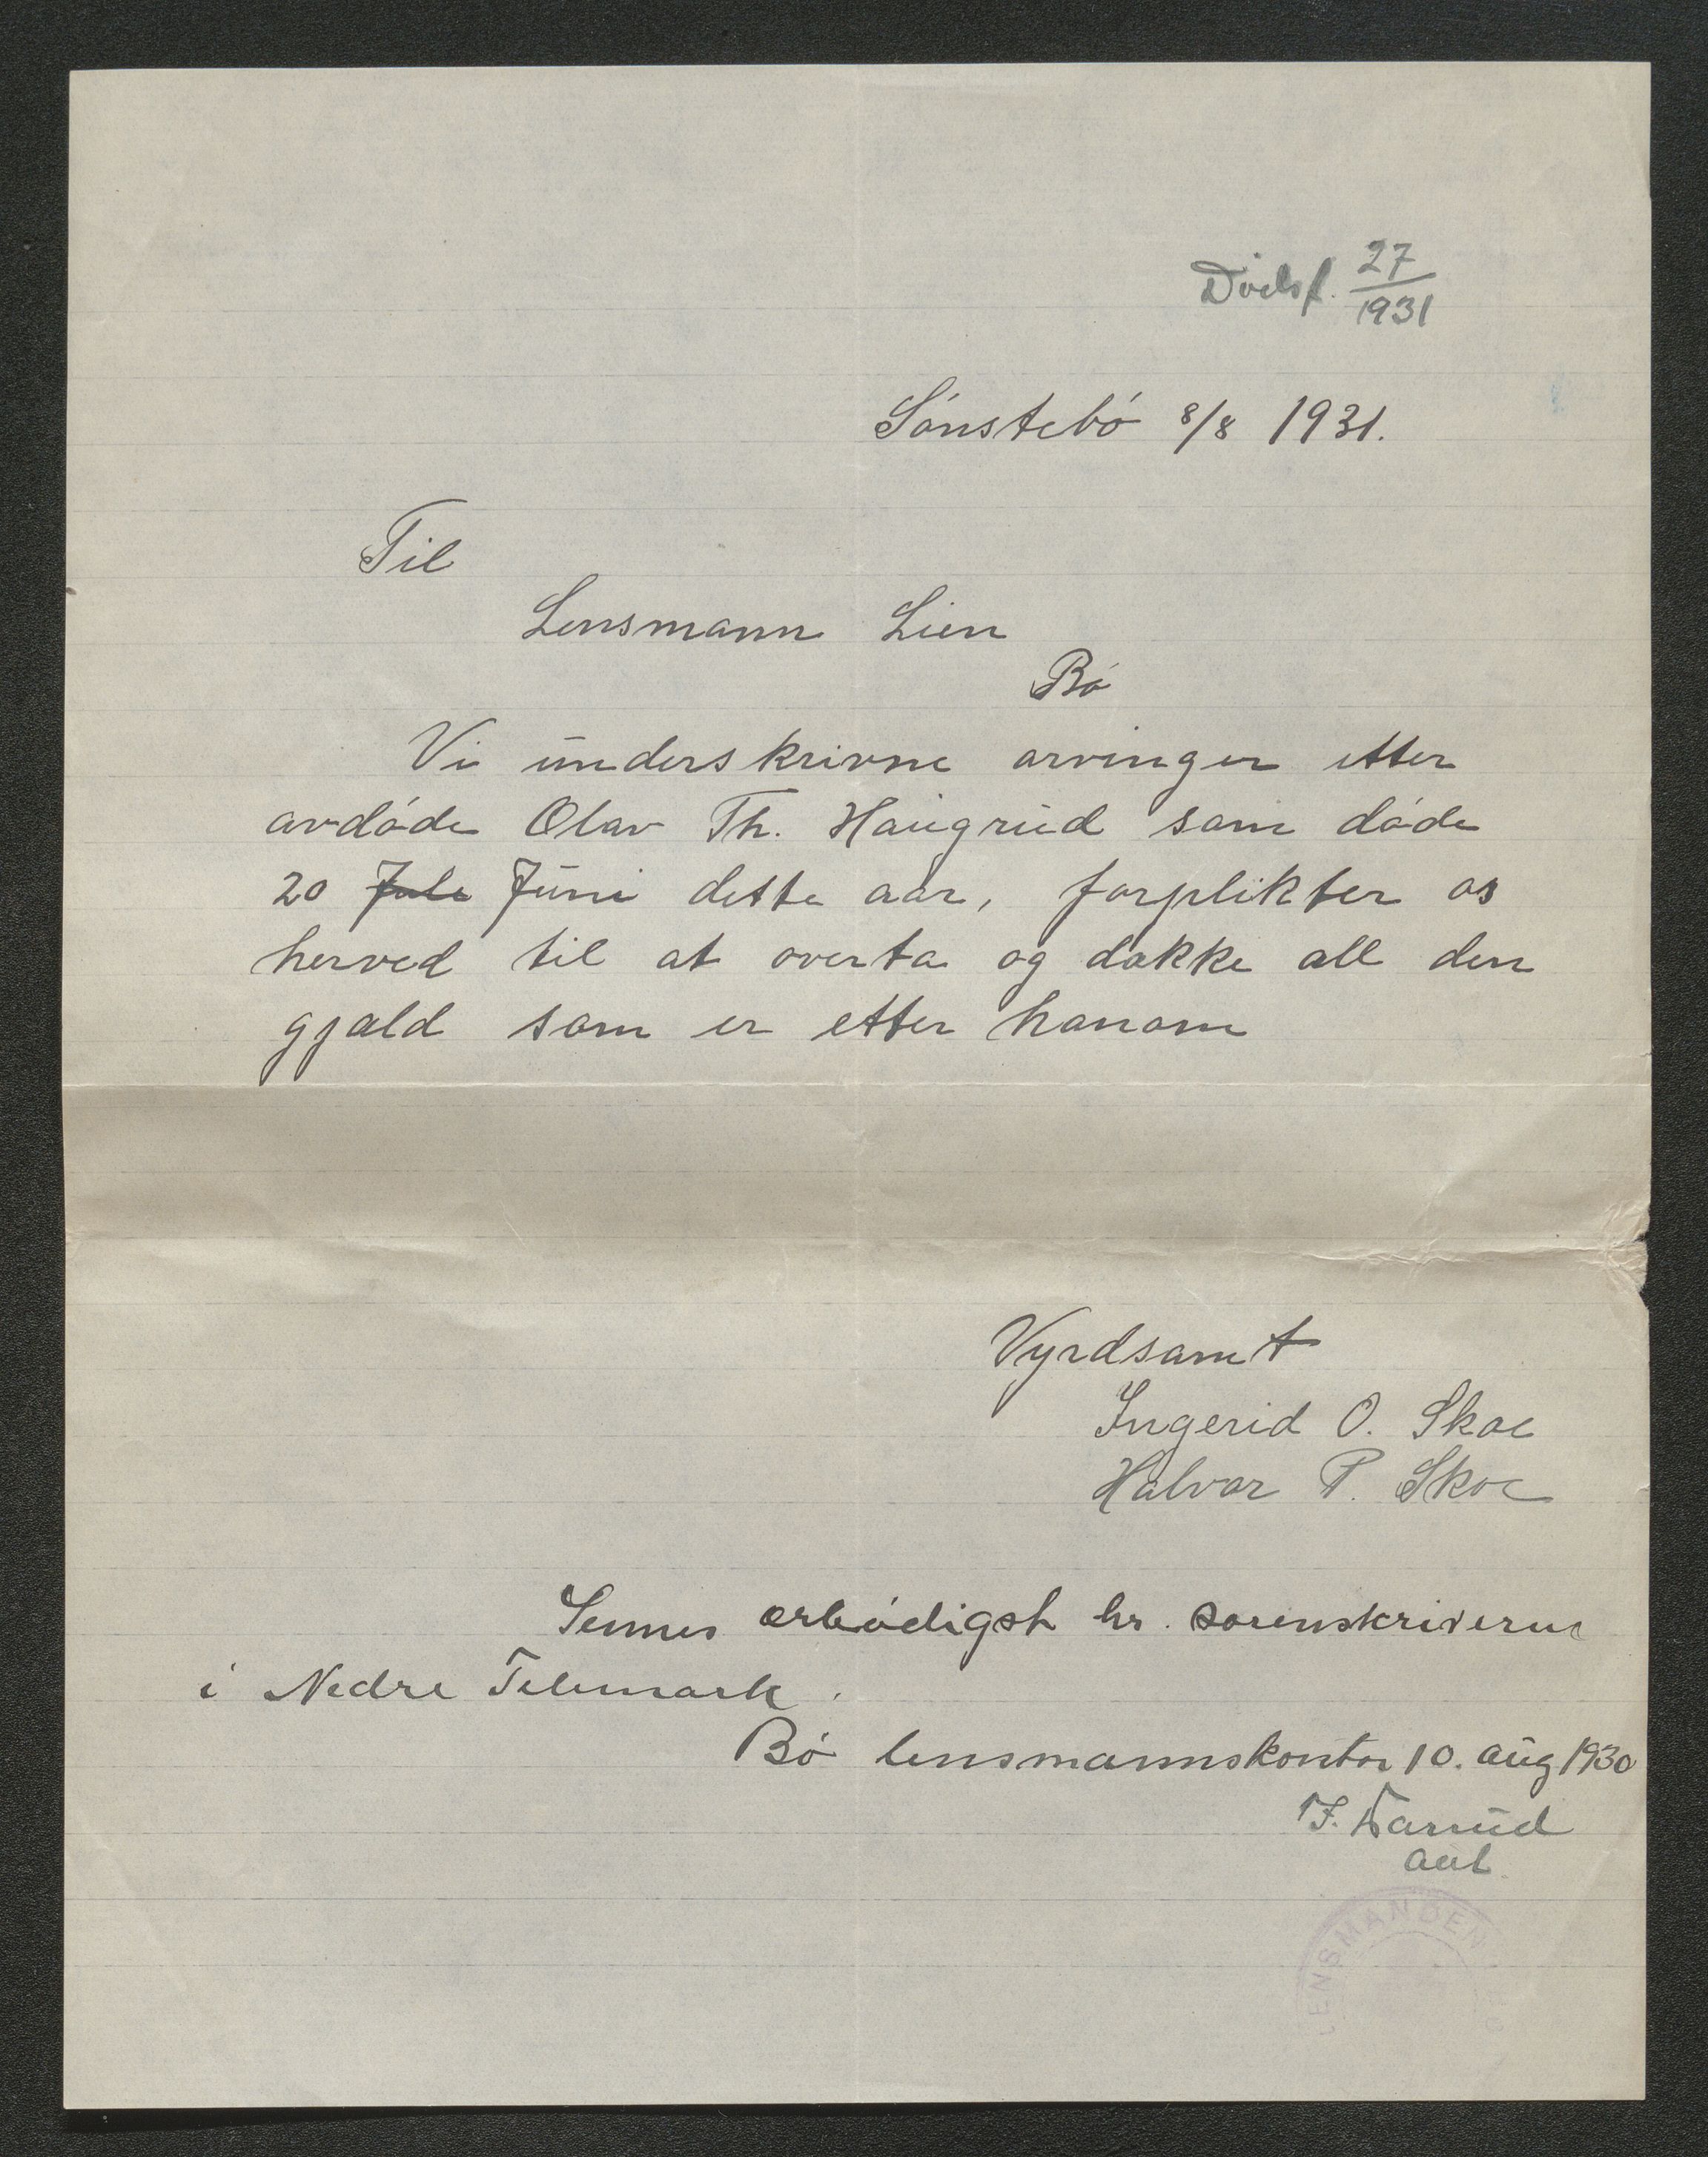 Dødsf. 27/1931
Sónstebó 8/8 1931.
Til
Lensmann Lien
Bó
Vi underskrivne arvinger etter
avdóde Olav Th. Haugrud som dóde
20 Jule Juni dette aar, forplikter os
herved til at overta og dække all den
gjæld som er etter honom
Vyrdsamt
Ingerid O. Skoe
Halvor P. Skoe
Sennes ærbódigst hr. sorenskriveren
i Nedre Telemark.
Bó lensmannskontor 10. aug 1930
aut
LENSMANDEN